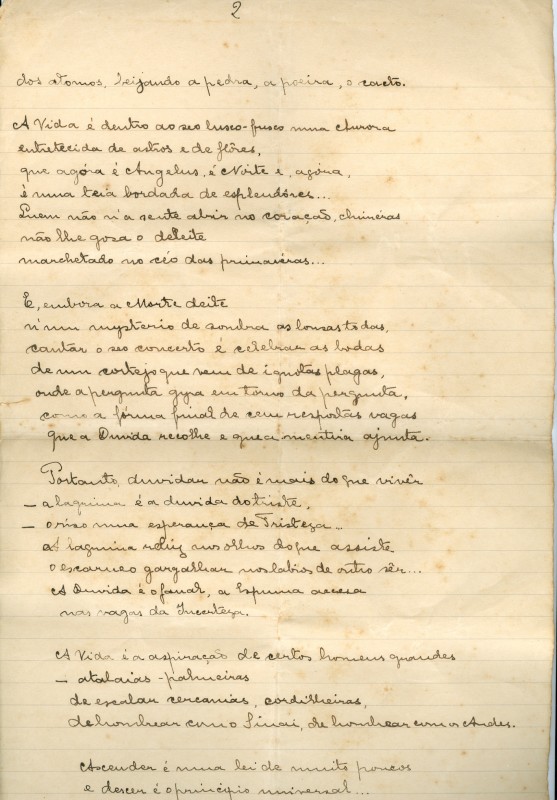 2
dos atomos, beijando a pedra, a poeira, o cacto.
A Vida é dentro ao seo lusco-fusco uma Aurora
entretecida de astros e de flôres,
que agóra é Angelus, é Noite e, agóra,
é uma teia bordada de esplendôres...
Quem não n'a sente abrir no coração, chiméras
não lhe gosa o deleite
marchetado no céo das primavéras...
E, embora a Morte deite
n'um mysterio de sombra as lousas todas,
cantar o seo concerto é celebrar as bodas
de um cortejo que vem de ignotas plagas,
onde a pergunta gyra em torno da pergunta,
como a fórma final de cem respostas vagas
que a Duvida recolhe e que a mentira ajunta.
Portanto, duvidar não é mais do que vivêr
— a lagrima é a duvida do triste,
— o riso uma esperança de Tristeza...
A lagrima reluz nos olhos do que assiste
o escarneo gargalhar nos labios de outro sêr...
A Duvida é o fanal, a Espuma accesa
nas vagas da Incerteza.
A Vida é a aspiração de certos homens grandes
— atalaias-palmeiras
de escalar cercanias, cordilheiras,
de hombrear com o Sinai, de hombrear com os Andes.
Ascender é uma lei de muito poucos
e descer é o principio universal...